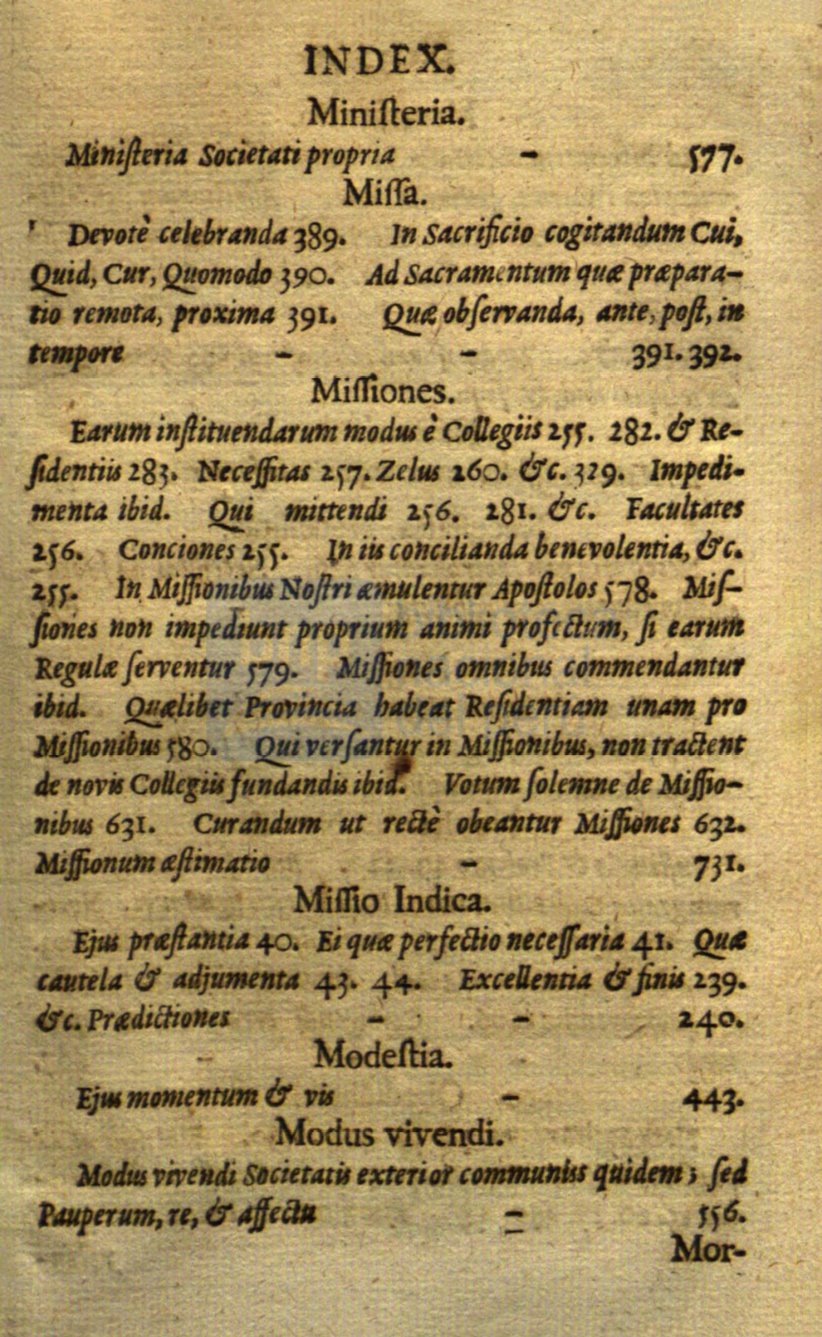 INDEX.
Miniſteria.
Miniſteria Societati propria - 577.
Miſſa.
Devotè celebranda 389. In Sacrificio cogitandum Cui,
Quid, Cur, Quomodo 390. Ad Sacramentum quæ præpara-
tio remota, proxima 391. Quæ obſervanda, ante, poſt, in
tempore - - 391. 392.
Miſſiones.
Earum inſtituendarum modus è Collegiis 255. 282. & Re-
ſidentiis 283. Neceſſitas 257. Zelus 260. &c. 329. Impedi-
menta ibid. Qui mittendi 256. 281. &c. Facultates
256. Conciones 255. In iis concilianda benevolentia, &c.
255. In Miſſionibus Noſtri æmulentur Apoſtolos 578. Miſ-
ſiones non impediunt proprium animi profectum, ſi earum
Regulæ ſerventur 579. Miſſiones omnibus commendantur
ibid. Quælibet Provincia habeat Reſidentiam unam pro
Miſſionibus 580. Qui verſantur in Miſſionibus, non tractent
de novis Collegiis fundandis ibid. Votum ſolemne de Miſſio-
nibus 631. Curandum ut rectè obeantur Miſſiones 632.
Miſſionum æſtimatio - 731.
Miſſio Indica.
Ejus præſtantia 40. Ei quæ perfectio neceſſaria 41. Quæ
cautela & adjumenta 43. 44. Excellentia & finis 239.
&c. Prædictiones - - 240.
Modeſtia.
Ejus momentum & vis - 443.
Modus vivendi.
Modus vivendi Societatis exterior communis quidem; ſed
Pauperum, re, & affectu - 556.
Mor-